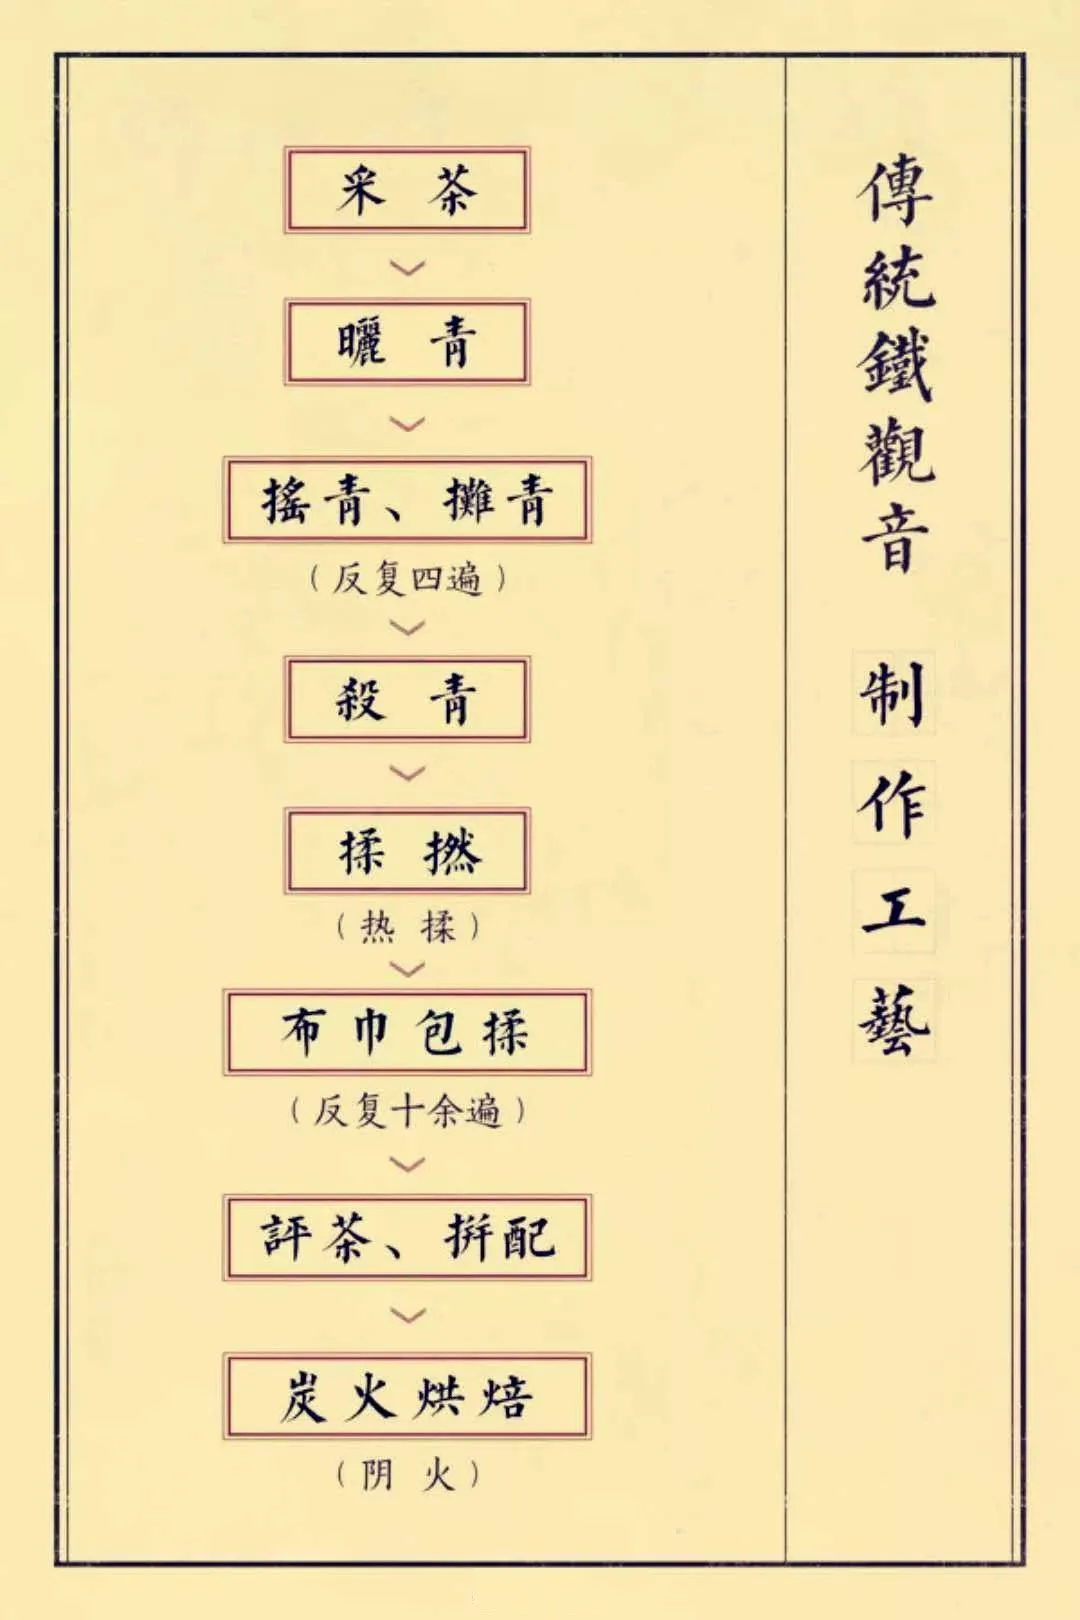 傳統鐵觀音 制作工藝
采茶
曬青
搖青、攤青
（反复四遍）
殺青
揉撚
（热揉）
布巾包揉
（反复十余遍）
評茶、拼配
炭火烘焙
（阴火）